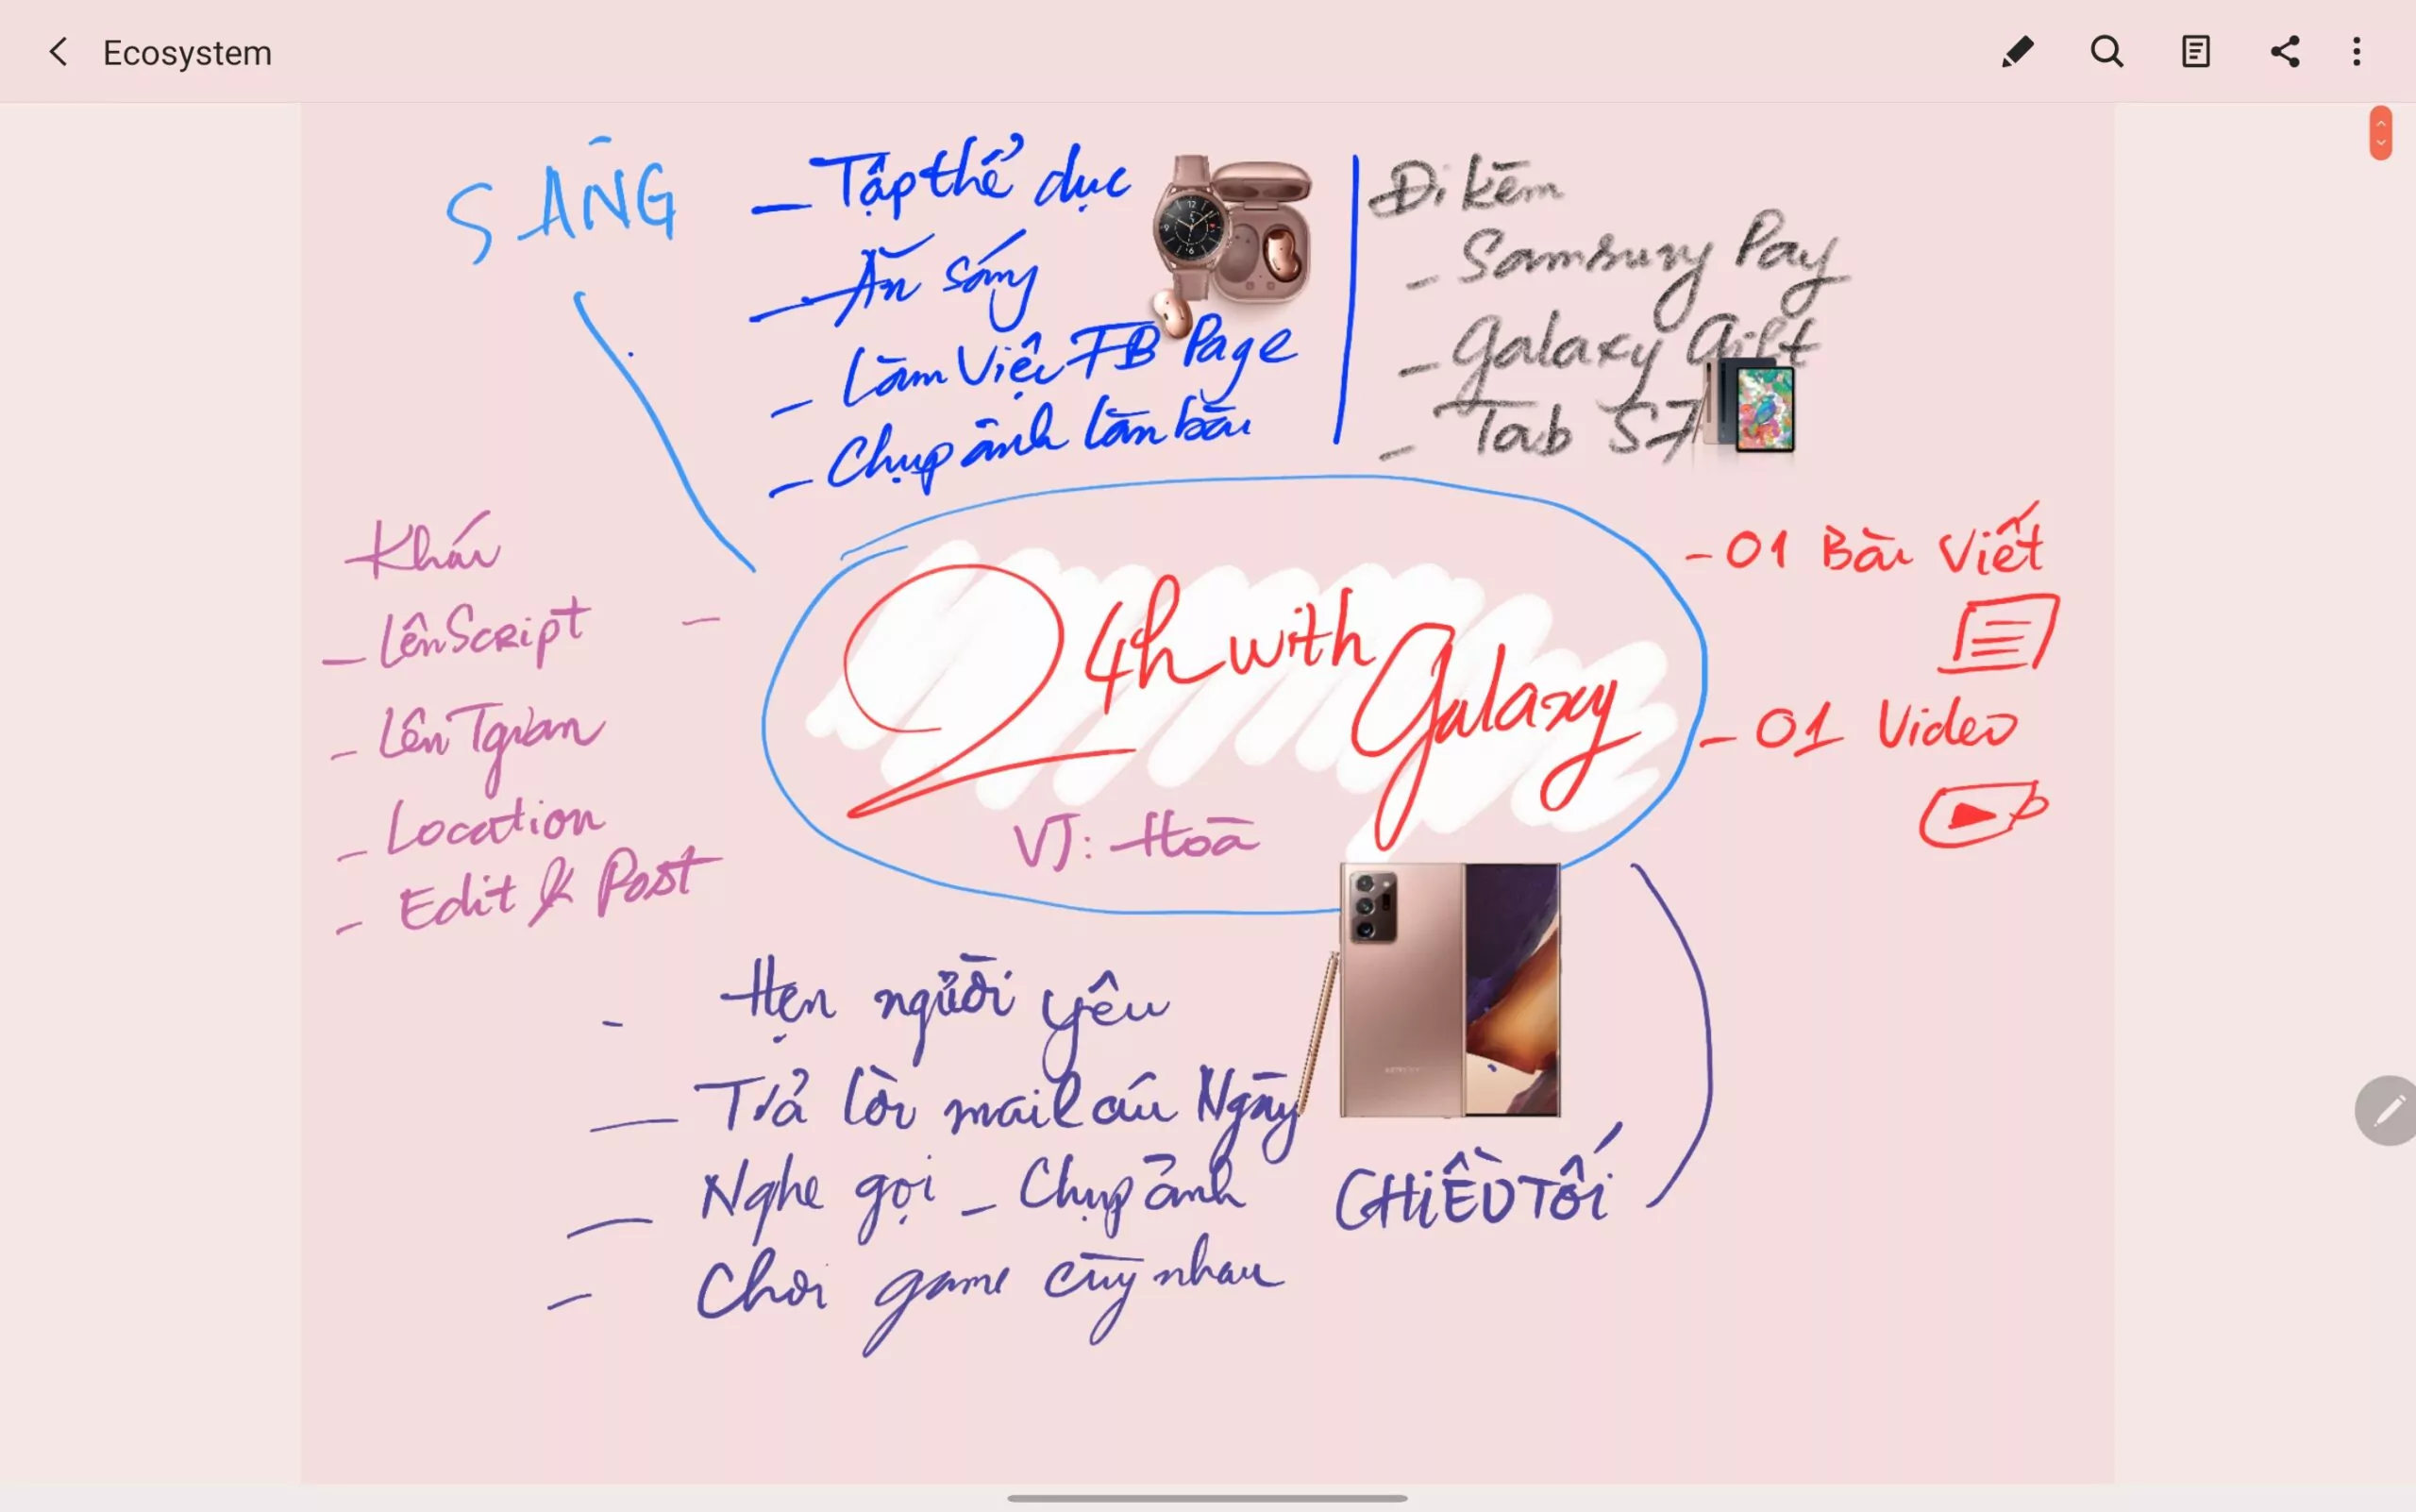 Ecosystem
SÁNG
- Tập thể dục
- Ăn sáng
- Làm Việc FB Page
- Chụp ảnh làm bài
Đi kèm
- Samsung Pay
- Galaxy Gift
- Tab S7
Khác
- Lên Script
- Lên Tgian
- Location
- Edit & Post
24h with Galaxy
VJ: Hoà
- 01 Bài Viết
- 01 Video
- Hẹn người yêu
- Trả lời mail cuối Ngày
- Nghe gọi - Chụp ảnh
- Chơi game cùng nhau
CHIỀU TỐI